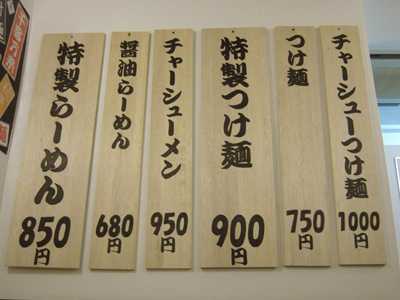 特製らーめん
850円
醤油らーめん
680円
チャーシューメン
950円
特製つけ麺
900円
つけ麺
750円
チャーシューつけ麺
1000円